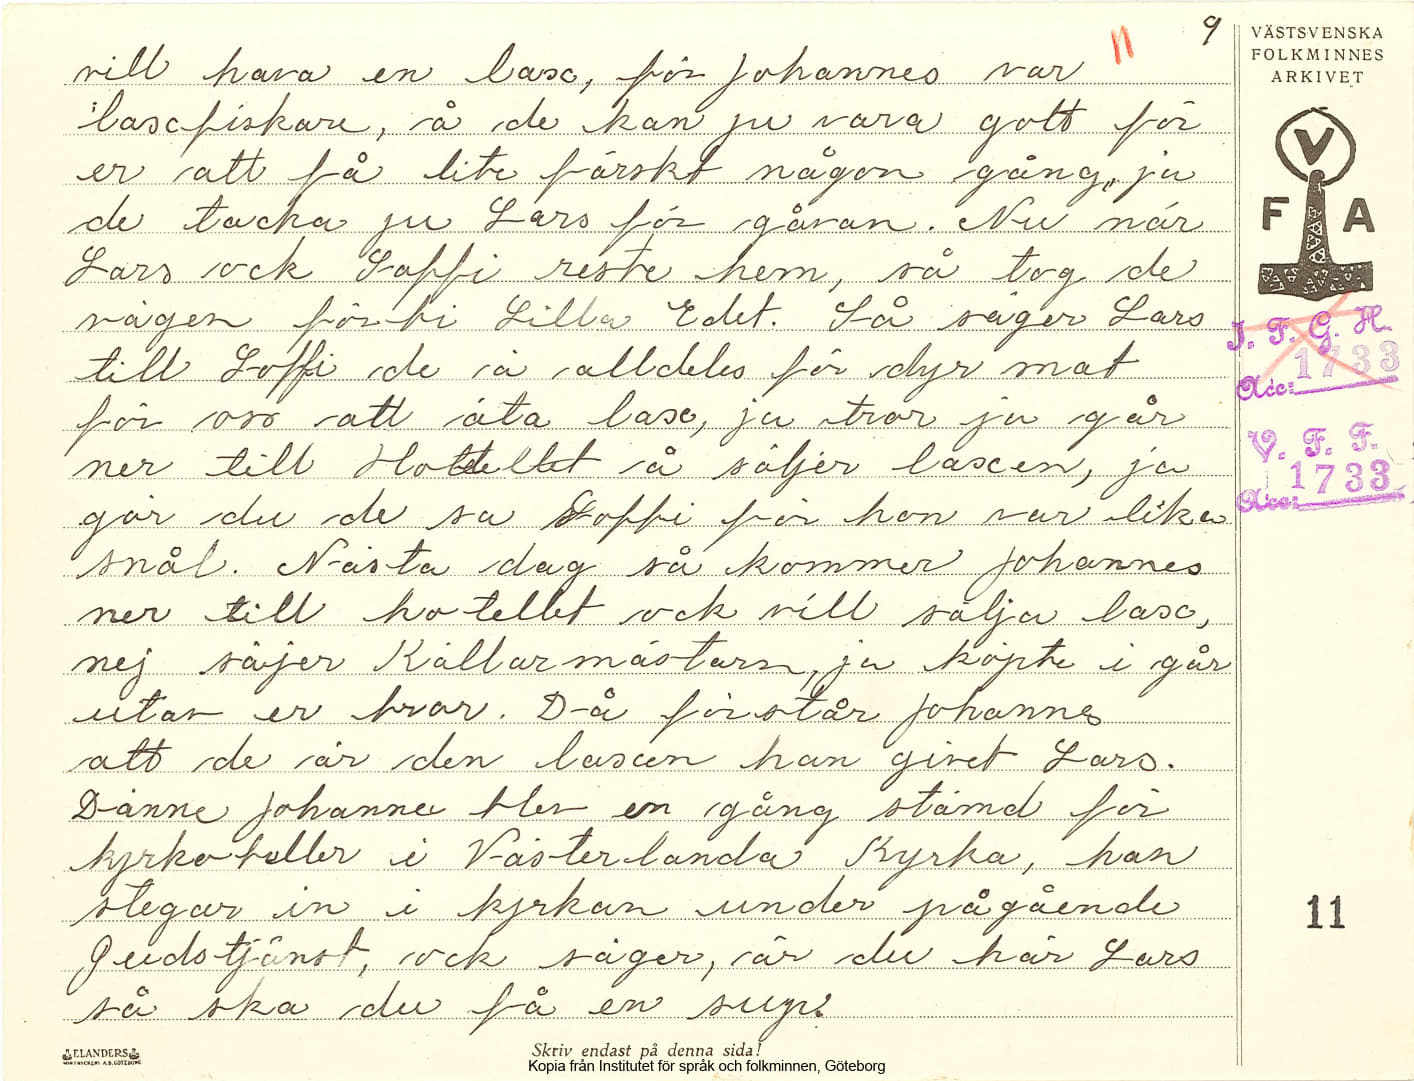 11 9
vill hava en lax, för Johannes var
laxfiskare, å de kan ju vara gott för
er att få lite färskt någon gång, ja
de tacka ju Lars för gåvan. Nu när
Lars ock Soffi reste hem, så tog de
vägen förbi Lilla Edet. Så säger Lars
till Soffi de ä alldeles för dyr mat
för oss att äta lax, ja tror ja går
ner till Hottellet å säljer laxen, ja
gör du de sa Soffi för hon var lika
snål. Nästa dag så kommer Johannes
ner till hotellet ock vill sälja lax,
nej säjer Källarmästarn, ja köpte i går
utav er bror. Då förstår Johannes
att de är den laxen han givet Lars.
Dänne Johannes blev en gång stämd för
kyrkobuller i Västerlanda Kyrka, han
stegar in i kyrkan under pågående
Gudstjänst, ock säger, är du här Lars
så ska du få en sup.
VÄSTSVENSKA
FOLKMINNES
ARKIVET
V
F A
I. F. G. H.
1733
Acc:
V. F. F.
1733
Acc:
11
ELANDERS
Skriv endast på denna sida!
Kopia från Institutet för språk och folkminnen, Göteborg